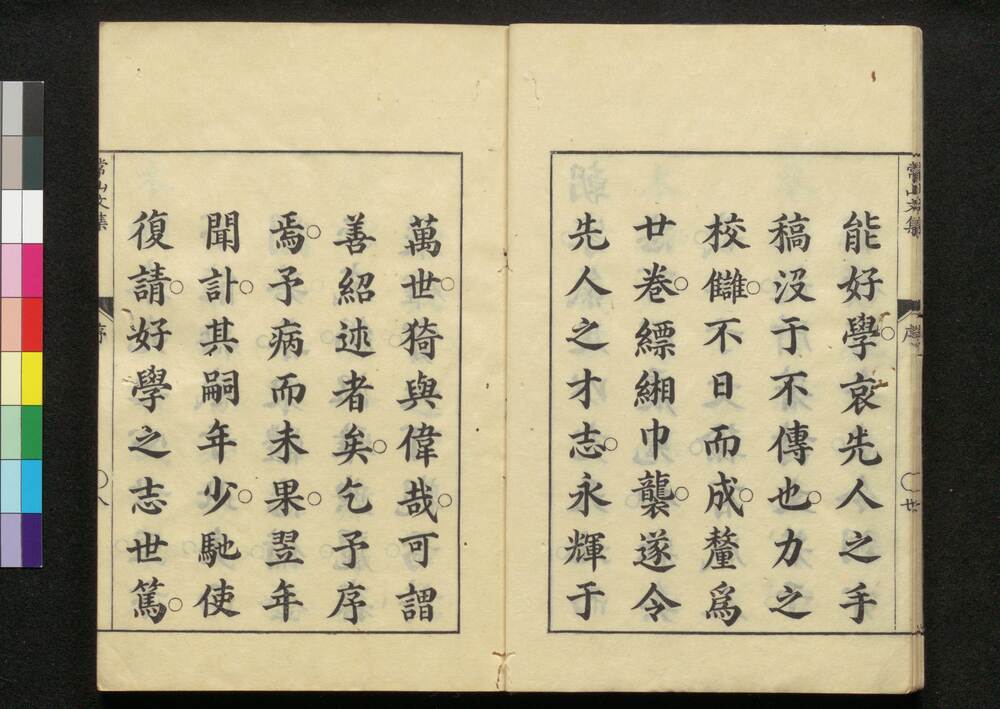 能好學○哀先人之手
稿没于不傳也○力之
校讎○不日而成○釐爲
廿卷○縹緗巾襲○遂令
先人之才志○永輝于
萬世○猗與偉哉○可謂
善紹述者矣○乞予序
焉○予病而未果○翌年
聞訃○其嗣年少○馳使
復請○好學之志世篤○
常山文集
序
八